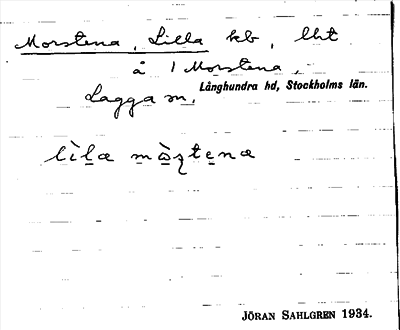 Morstena, Lilla kb, lht
å 1 Morstena,
Lagga sn, Långhundra hd, Stockholms län.
lìlæ màʂtenæ
JÖRAN SAHLGREN 1934.